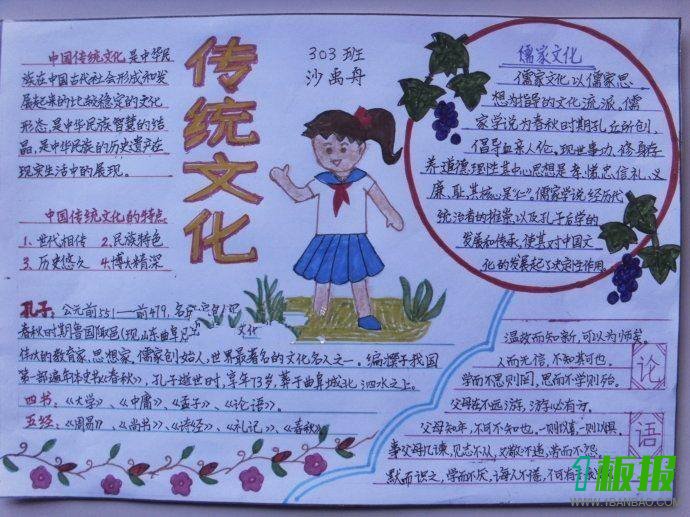 传统文化
303班
沙禹舟
中国传统文化是中华民
族在中国古代社会形成和发
展起来的比较稳定的文化
形态,是中华民族智慧的结
晶,是中华民族的历史遗产在
现实生活中的展现。
中国传统文化的特点
1、世代相传 2、民族特色
3、历史悠久 4、博大精深
儒家文化
儒家文化以儒家思
想为指导的文化流派。儒
家学说为春秋时期孔丘所创,
倡导血亲人伦、现世事功、修身存
养、道德理性其中心思想是孝、悌、忠、信、礼、义、
廉、耻,其核心是“仁”。儒家学说经历代
统治者的推崇,以及孔子后学的
发展和传承,使其对中国文
化的发展起了决定性作用
孔子:公元前551—前479,名
春秋时期鲁国陬邑(现山东曲阜
文化
伟大的教育家、思想家、儒家创始人,世界最著名的文化名人之一。编撰了我国
第一部编年体史书《春秋》,孔子逝世时,享年73岁,葬于曲阜城北泗水之上。
四书:《大学》、《中庸》、《孟子》、《论语》。
五经:《周易》、《尚书》、《诗经》、《礼记》、《春秋》
论语
温故而知新,可以为师矣。
人而无信,不知其可也。
学而不思则罔,思而不学则殆。
父母在不远游,游必有方。
父母知年,不可不知也,一则以喜,一则以惧.
事父母几谏,见志不从,又敬不违,劳而不怨.
默而识之,学而不厌,诲人不倦,不可有
1板报
WWW.1BANBAO.COM